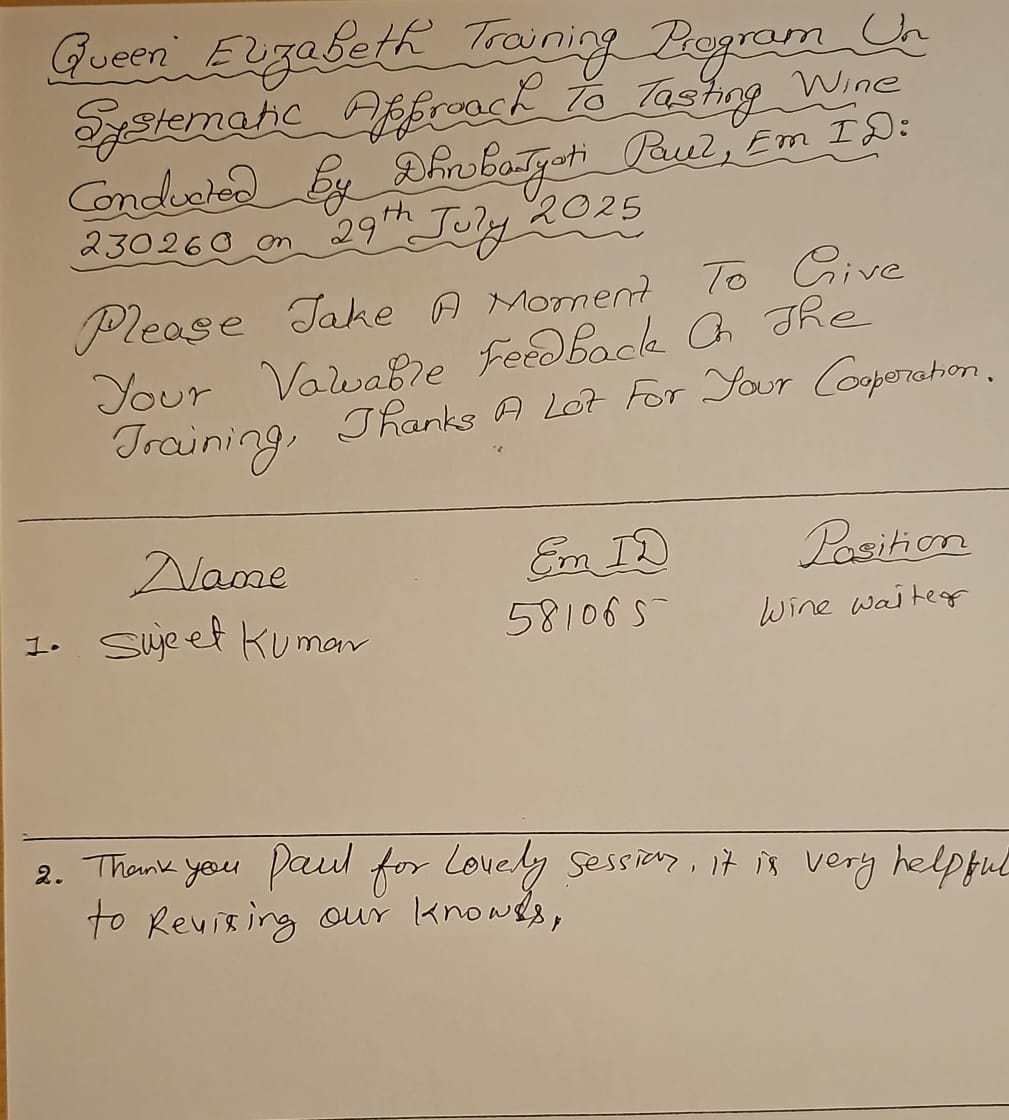 Queen Elizabeth Training Program On
Systematic Approach To Tasting Wine
Conducted By DhrubaJyoti Paul, Em ID:
230260 on 29th July 2025
Please Take A Moment To Give
Your Valuable Feedback On The
Training, Thanks A Lot For Your Cooperation.
Name Em ID Position
1. Sujeet Kumar 581065 Wine waiter
2. Thank you Paul for Lovely session, it is very helpful
to Revising our